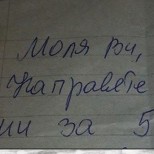 Моля Ви,
направяте
ми за 5